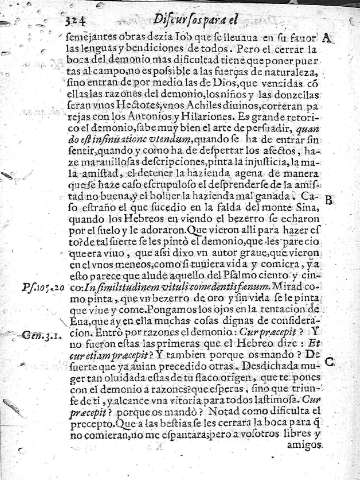 324 Discursos para el
semejantes obras dezia Iob que se lleuaua en su fauor A
las lenguas y bendiciones de todos. Pero el cerrar la
boca del demonio mas dificultad tiene que poner puer
tas al campo, no es possible a las fuerças de naturaleza,
sino entran de por medio las de Dios, que vencidas cõ
ellas las razones del demonio, los niños y las donzillas
seran vnos Hectores, vnos Achiles diuinos, correran pa
rejas con los Antonios y Hilariones. Es grande retori-
co el demonio, sabe muy bien el arte de persuadir, quan
do est insinuatione vtendum, quando se ha de entrar sin
sentir, quando y como ha de despertar los afectos, ha-
ze marauillosas descripciones, pinta la injusticia, la ma-
la amistad, el detener la hazienda agena de manera
que se haze caso escrupuloso el desprenderse de la amis-
tad no buena, y el boluer la hazienda mal ganada. Ca- B
so estraño el que sucedio en la falda del monte Sina,
quando los Hebreos en viendo el bezerro se echaron
por el suelo y le adoraron. Que vieron alli para hazer es
to? de tal suerte se les pintò el demonio, que les parecio
que era viuo, que assi dixo vn autor graue, que vieron
en el vnos meneos, como si tuuiera vida y comiera, y a
esto parece que alude aquello del Psalmo ciento y cin-
Ps. 105. 20 co: In similitudinem vituli comedentis fœnum. Mirad co-
mo pinta, que vn bezerro de oro y sin vida se le pinta
que viue y come. Pongamos los ojos en la tentacion de
Eua, que ay en ella muchas cosas dignas de considera-
Gen. 3. 1. cion. Entrò por razones el demonio: Cur præcepit? Y
no fueron estas las primeras que el Hebreo dize: Et
cur etiam præcepit? Y tambien porque os mandò? De C
suerte que ya auian precedido otras. Desdichada mu-
ger tan oluidada estas de tu flaco origen, que te pones
con el demonio a razones? que esperas, sino que triun-
fe de ti, y alcance vna vitoria para todos lastimosa. Cur
præcepit? porque os mandò? Notad como dificulta el
precepto. Que a las bestias se les cerrara la boca para q̃
no comieran, no me espantara, pero a vosotros libres y
amigos